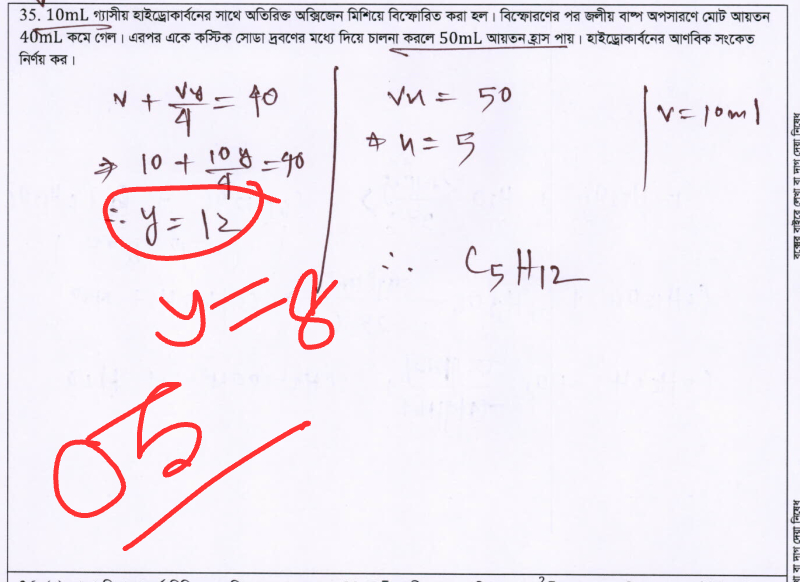 35. 10mL গ্যাসীয় হাইড্রোকার্বনের সাথে অতিরিক্ত অক্সিজেন মিশিয়ে বিস্ফোরিত করা হল। বিস্ফোরণের পর জলীয় বাষ্প অপসারণে মোট আয়তন
40mL কমে গেল। এরপর একে কস্টিক সোডা দ্রবণের মধ্যে দিয়ে চালনা করলে 50mL আয়তন হ্রাস পায়। হাইড্রোকার্বনের আণবিক সংকেত
নির্ণয় কর।
v + vy/4 = 40
⇒ 10 + 10y/4 = 40
∴ y = 12
vx = 50
⇒ x = 5
v = 10ml
∴ C5H12
y = 8
05
বক্সের বাইরে লেখা বা দাগ দেয়া নিষেধ
বা দাগ দেয়া নিষেধ